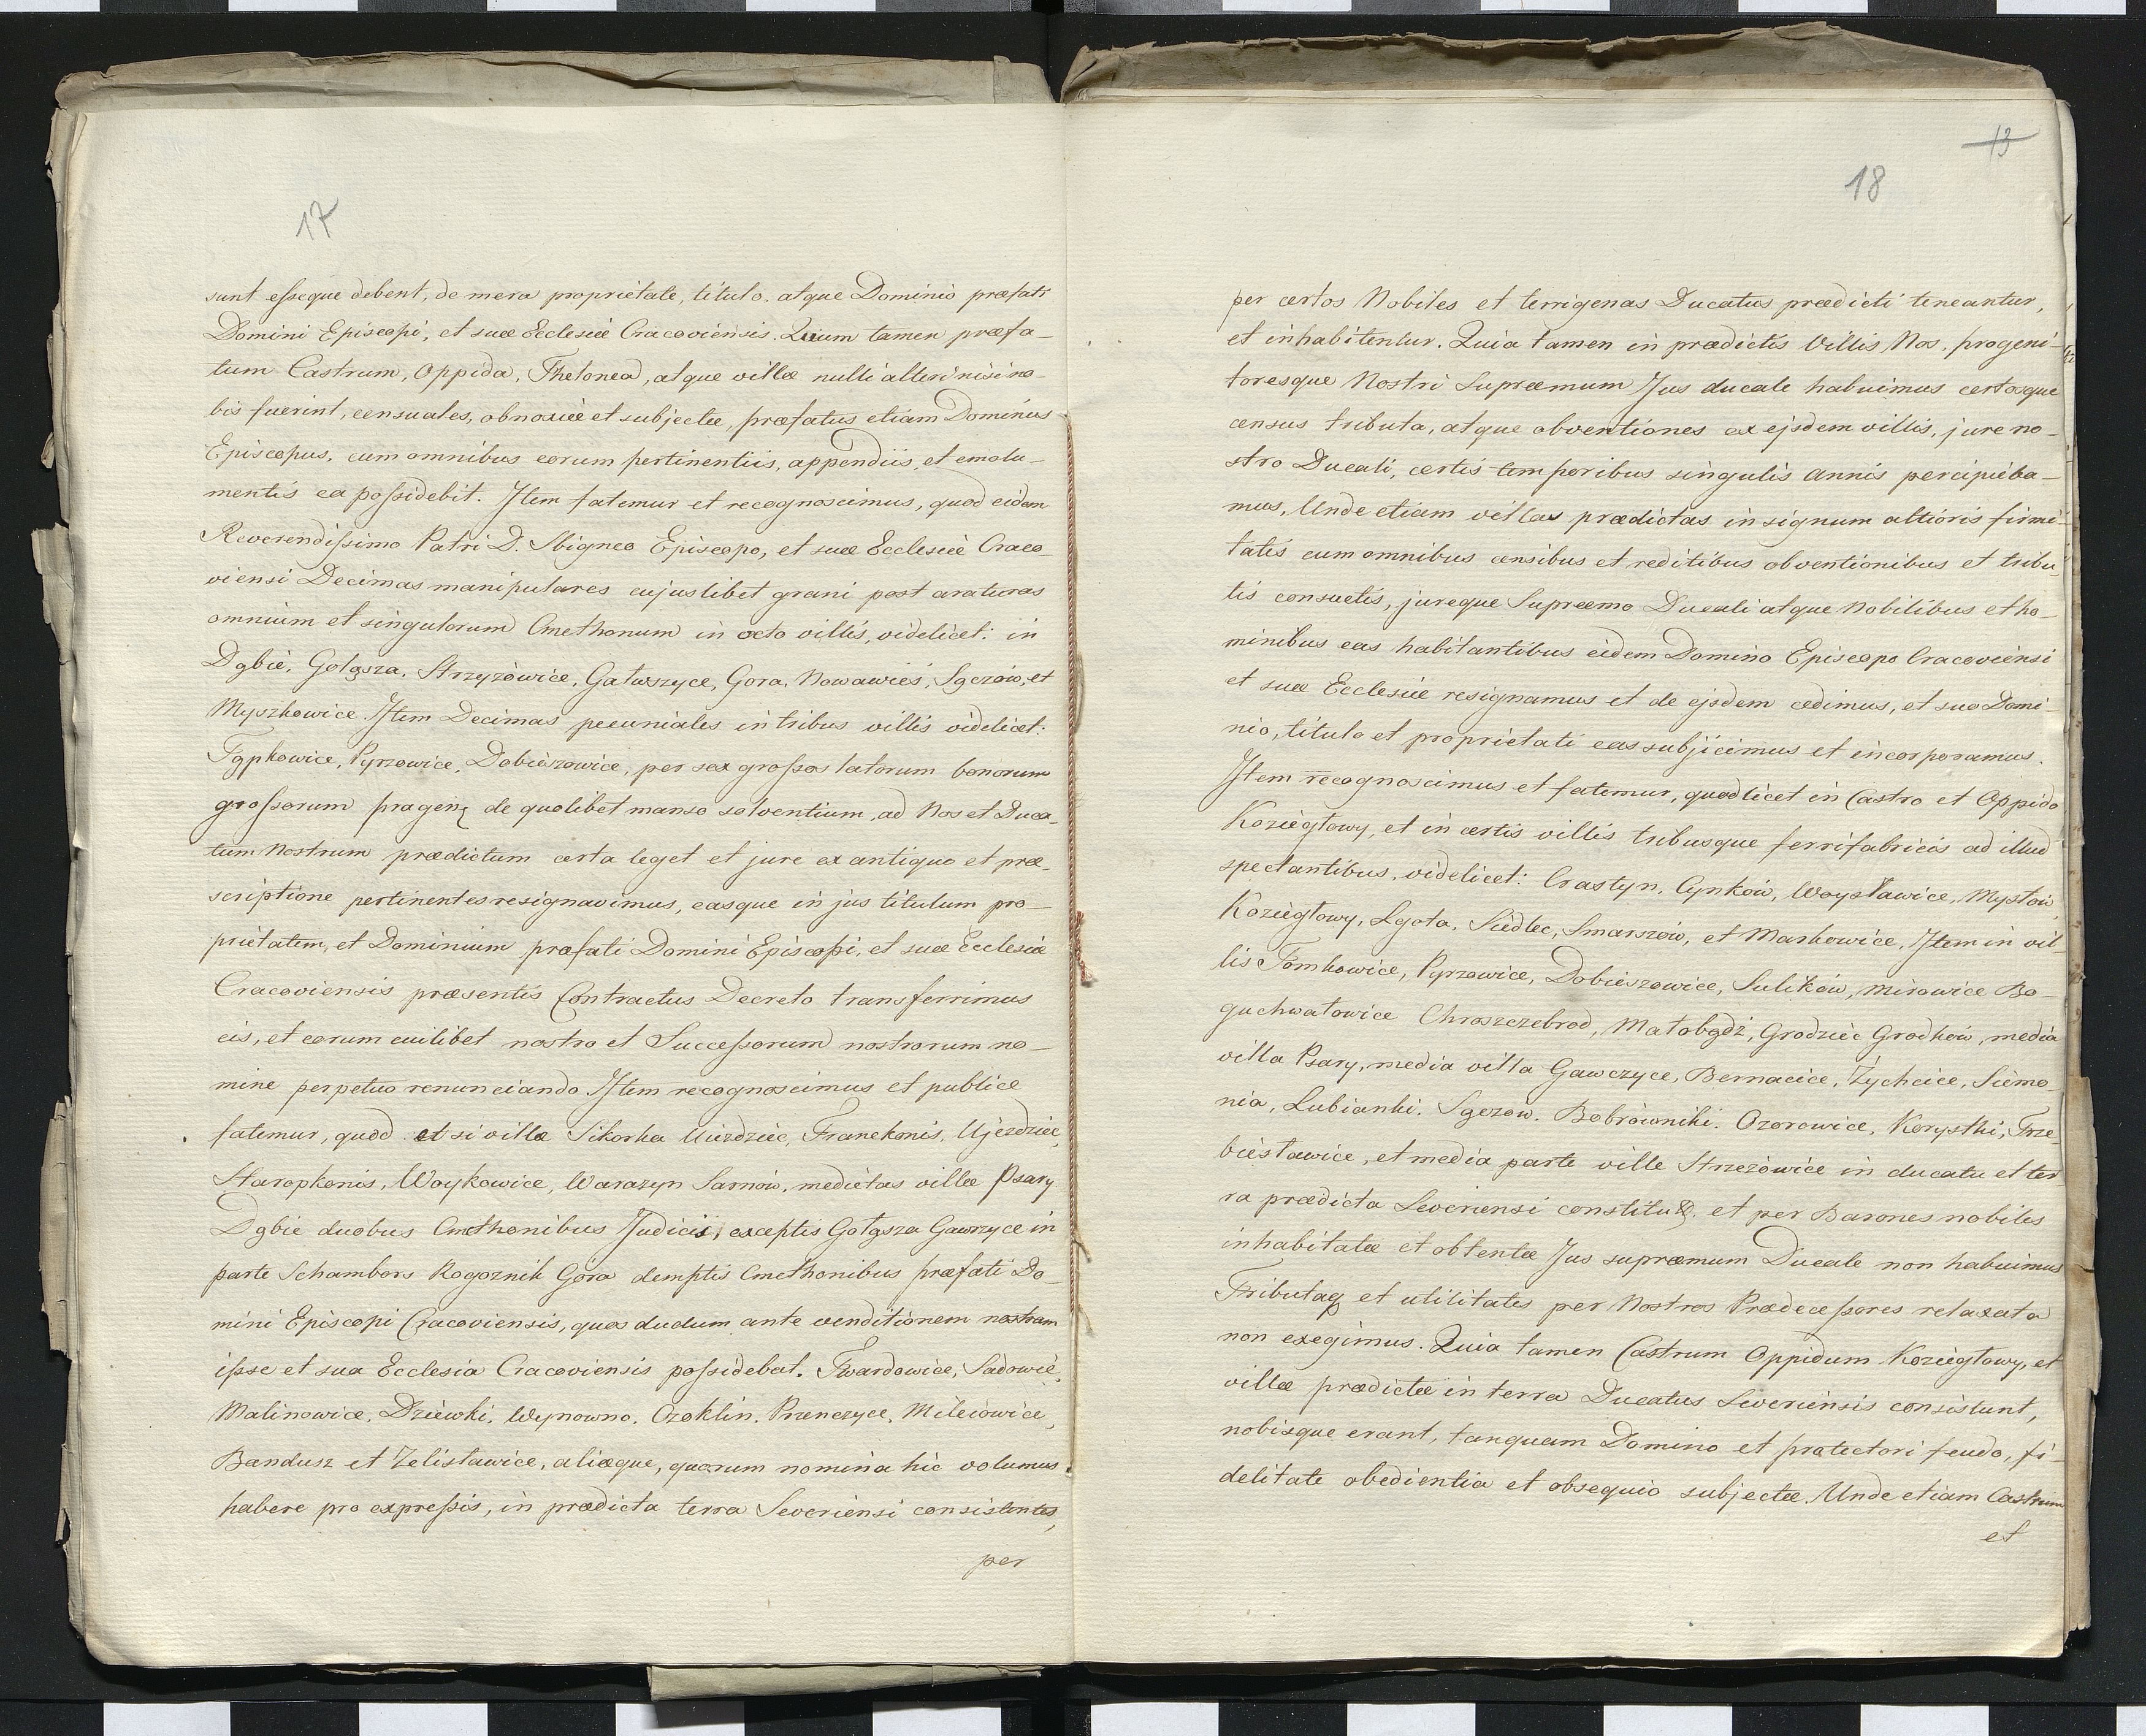 17
sunt esseque debent, de mera proprietate, titulo, atque Dominio præfati
Domini Episcopi, et suæ Ecclesiæ Cracoviensis. Quum tamen præfa-
tum Castrum, Oppida, Thelonea, atque villæ nulli alteri nisi no-
bis fuerint, censuales, obnoxiæ et subjectæ, præfatus etiam Dominus
Episcopus, cum omnibus eorum pertinentiis, appendiis, et emolu-
mentis ea possidebit. Item fatemur et recognoscimus, quod eidem
Reverendissimo Patri D. Sbigneo Episcopo, et suæ Ecclesiæ Craco-
viensi Decimas manipulares cujuslibet grani post araturas
omnium et singulorum Cmethonum in octo villis, videlicet: in
Dąbie, Gołąsza, Strzyżowice, Gatwszyce, Gora, Nowawieś, Sączów, et
Myszkowice. Item Decimas pecuniales in tribus villis videlicet:
Tąpkowice, Pyrzowice, Dobieszowice, per sex grossos latorum bonorum
grossorum pragen de quolibet manso solventium, ad Nos et Duca-
tum Nostrum prædictum certa leget et jure ex antiquo et præ-
scriptione pertinentes resignavimus, easque in jus titulum pro-
prietatem, et Dominium præfati Domini Episcopi, et suæ Ecclesiæ
Cracoviensis præsentis Contractus Decreto transferrimus
eis, et eorum cuilibet nostro et Successorum nostrorum no-
mine perpetuo renunciando. Item recognoscimus et publice
fatemur, quod et si villæ Sikorka Uiezdziec, Franekonis, Ujezdziec,
Staropkonis, Woykowice, Warazyn Sarnow, medietas villæ Psary
Dąbie duobus Cmethonibus Judicis, exceptis Gołąsza Gawrzyce in
parte Schambors Rogoznik Góra demptis Cmethonibus præfati Do-
mini Episcopi Cracoviensis, quos dudum ante venditionem nostram
ipse et sua Ecclesia Cracoviensis possidebat. Twardowice, Sadowie,
Malinowice, Dziewki, Wynowno, Ozoklin, Przenczyce, Milciowice,
Bandusz et Zelisławice, aliæque, quarum nomina hic volumus
habere pro expressis, in prædicta terra Severiensi consistentes,
per
13
18
per certos Nobiles et terrigenas Ducatus prædicti teneantur,
et inhabitentur. Quia tamen in prædictis Villis Nos, progeni-
toresque Nostri Supræmum Jus ducale habuimus certosque
census tributa, atque obventiones ex ejsdem villis, jure no-
stro Ducali, certis temporibus singulis annis percipieba-
mus, Unde etiam villas prædictas in signum altioris firmi-
tatis cum omnibus censibus et reditibus obventionibus et tribu-
tis consuetis, jureque Supræmo Ducali atque Nobilibus et ho-
minibus eas habitantibus eidem Domino Episcopo Cracoviensi
et suæ Ecclesiæ resignamus et de ejsdem cedimus, et suo Domi-
nio, titulo et proprietati eas subjicimus et incorporamus.
Item recognoscimus et fatemur, quod licet in Castro et Oppido
Koziegłowy, et in certis villis tribusque ferrifabricis ad illud
spectantibus, videlicet: Crastyn, Cynków, Woysławice, Mysłów,
Koziegłowy, Lgota, Siedlec, Smarzów, et Markowice, Item in vil-
lis Tomkowice, Pyrzowice, Dobieszowice, Sulików, Mirowice Bo-
guchwałowice Chroszczebrod, Małobądź, Grodziec Grodków, media
villa Psary, media villa Gawczyce, Bernacice, Żychcice, Siemo-
nia, Lubianki, Sgczow, Bobrówniki, Ozorowice, Korystki, Trze-
biesławice, et media parte ville Strzezowice in ducatu et ter-
ra prædicta Severiensi constitu, et per Barones nobiles
inhabitatæ et obtentæ Jus supræmum Ducale non habuimus
Tributaq et utilitates per Nostros Prædecessores relaxata
non exegimus. Quia tamen Castrum Oppidum Koziegłowy, et
villæ prædictæ in terra Ducatus Severiensis consistunt,
nobisque erant, tanquam Domino et protectori feudo, fi-
delitate obedientia et obsequio subjectæ. Unde etiam Castrum
et